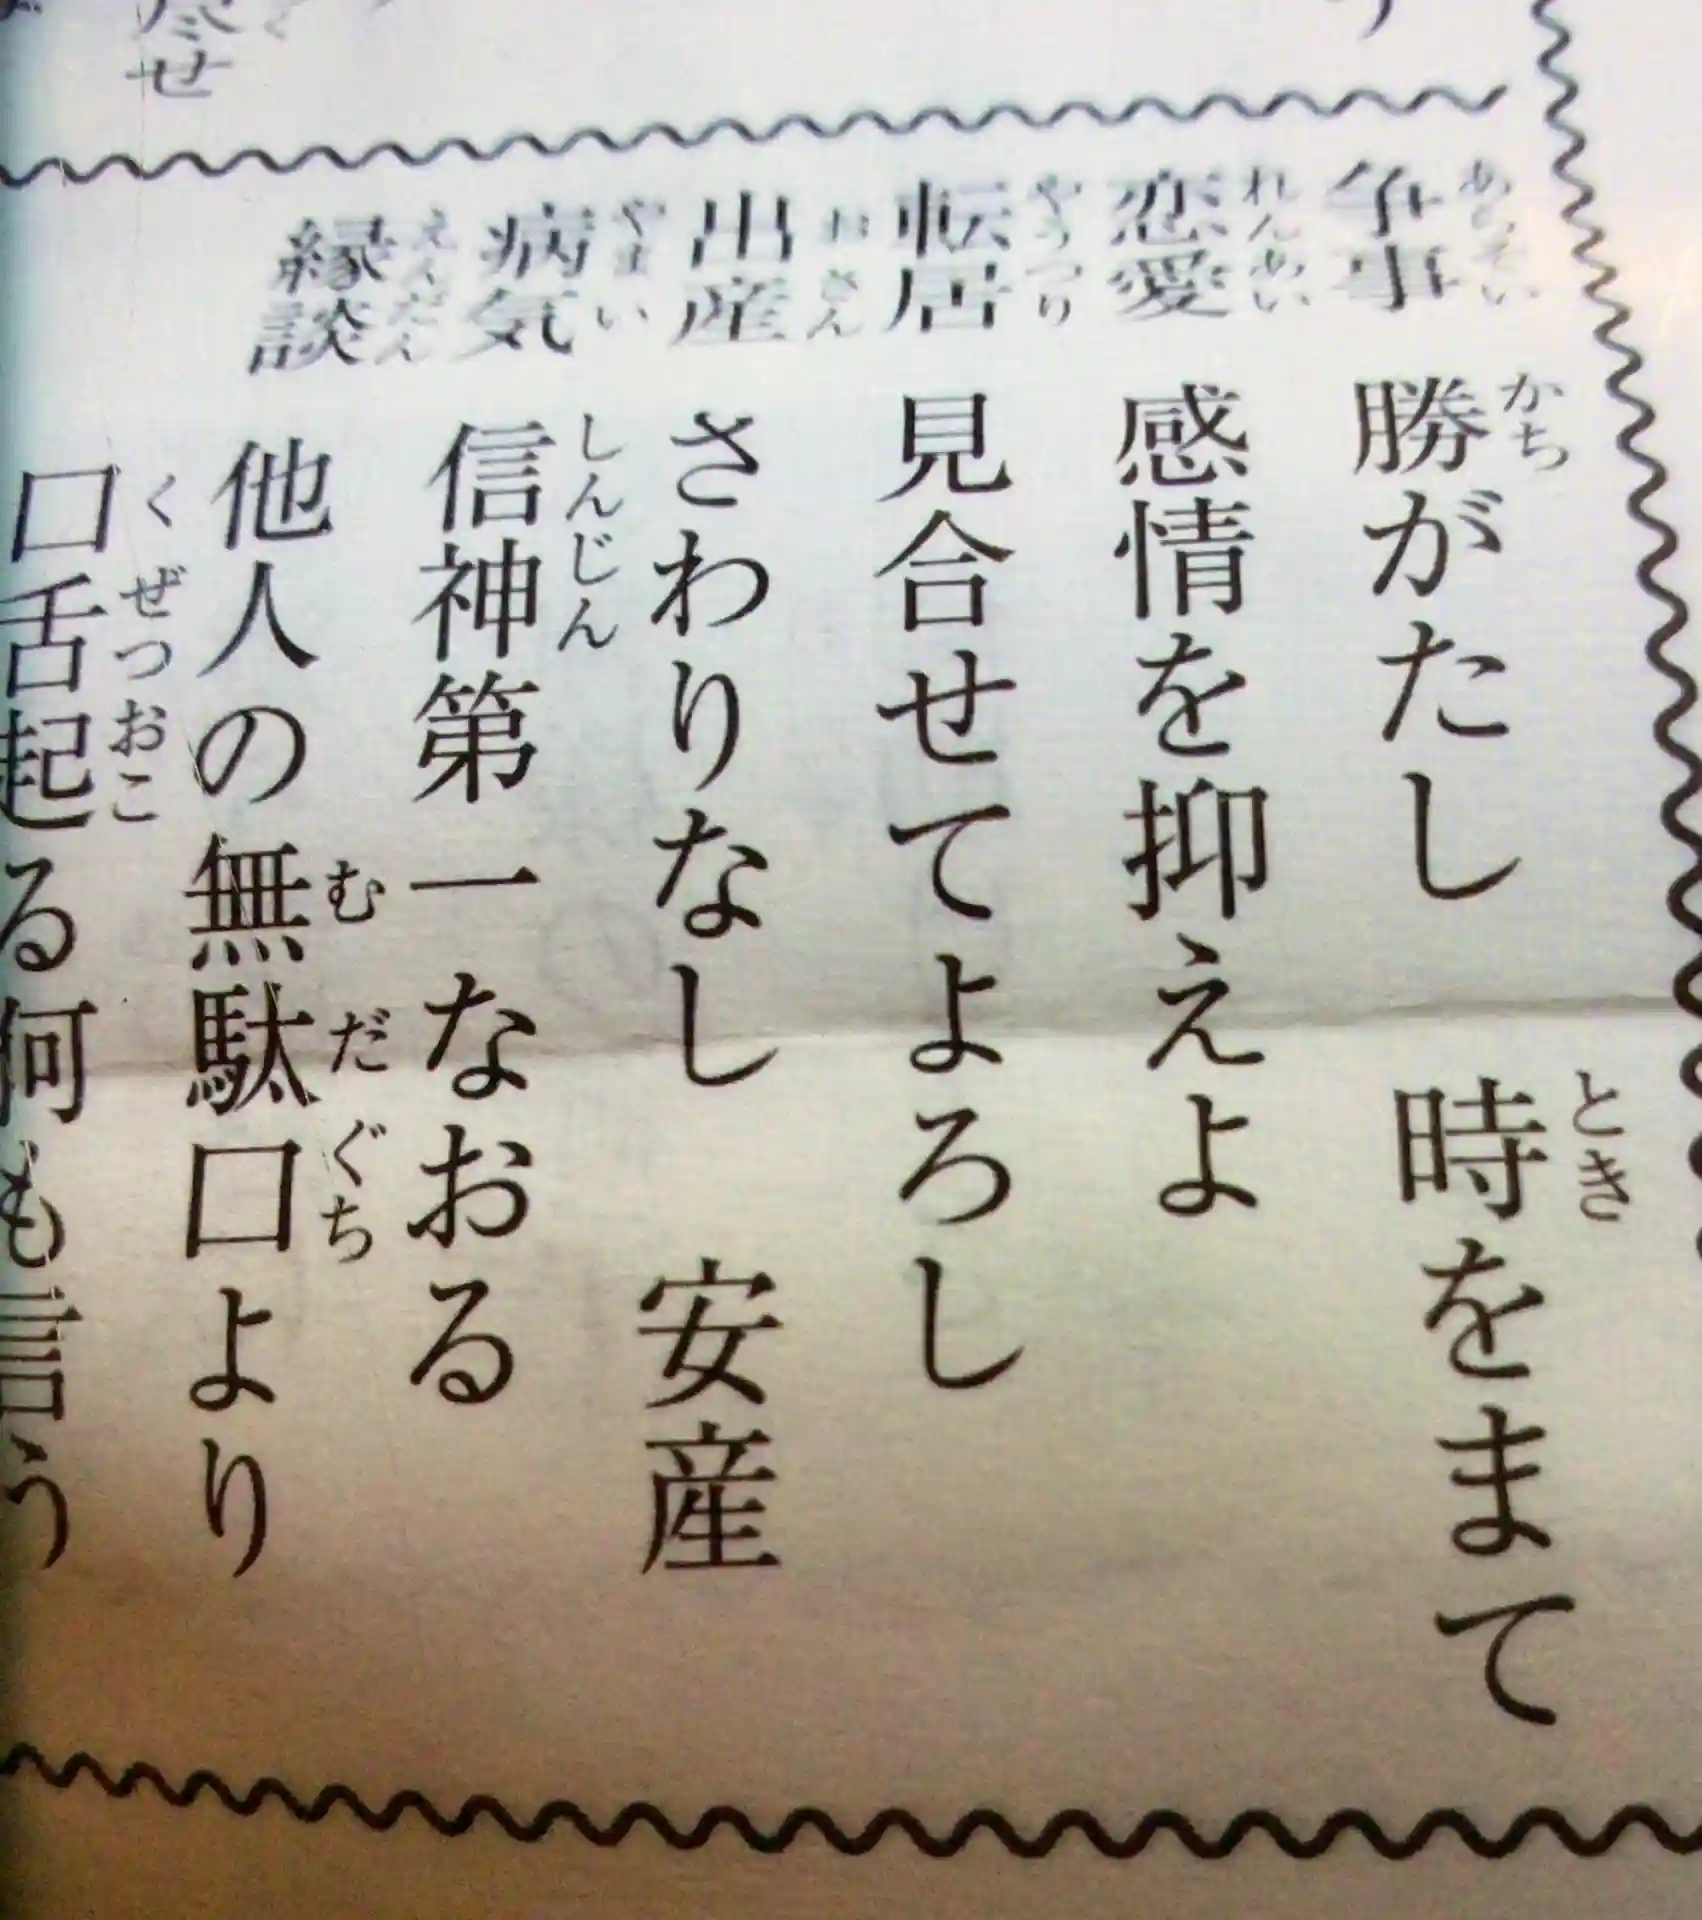 争事 勝がたし 時をまて
恋愛 感情を抑えよ
転居 見合せてよろし
出産 さわりなし 安産
病気 信神第一なおる
縁談 他人の無駄口より
口舌起る何も言う
尽せ